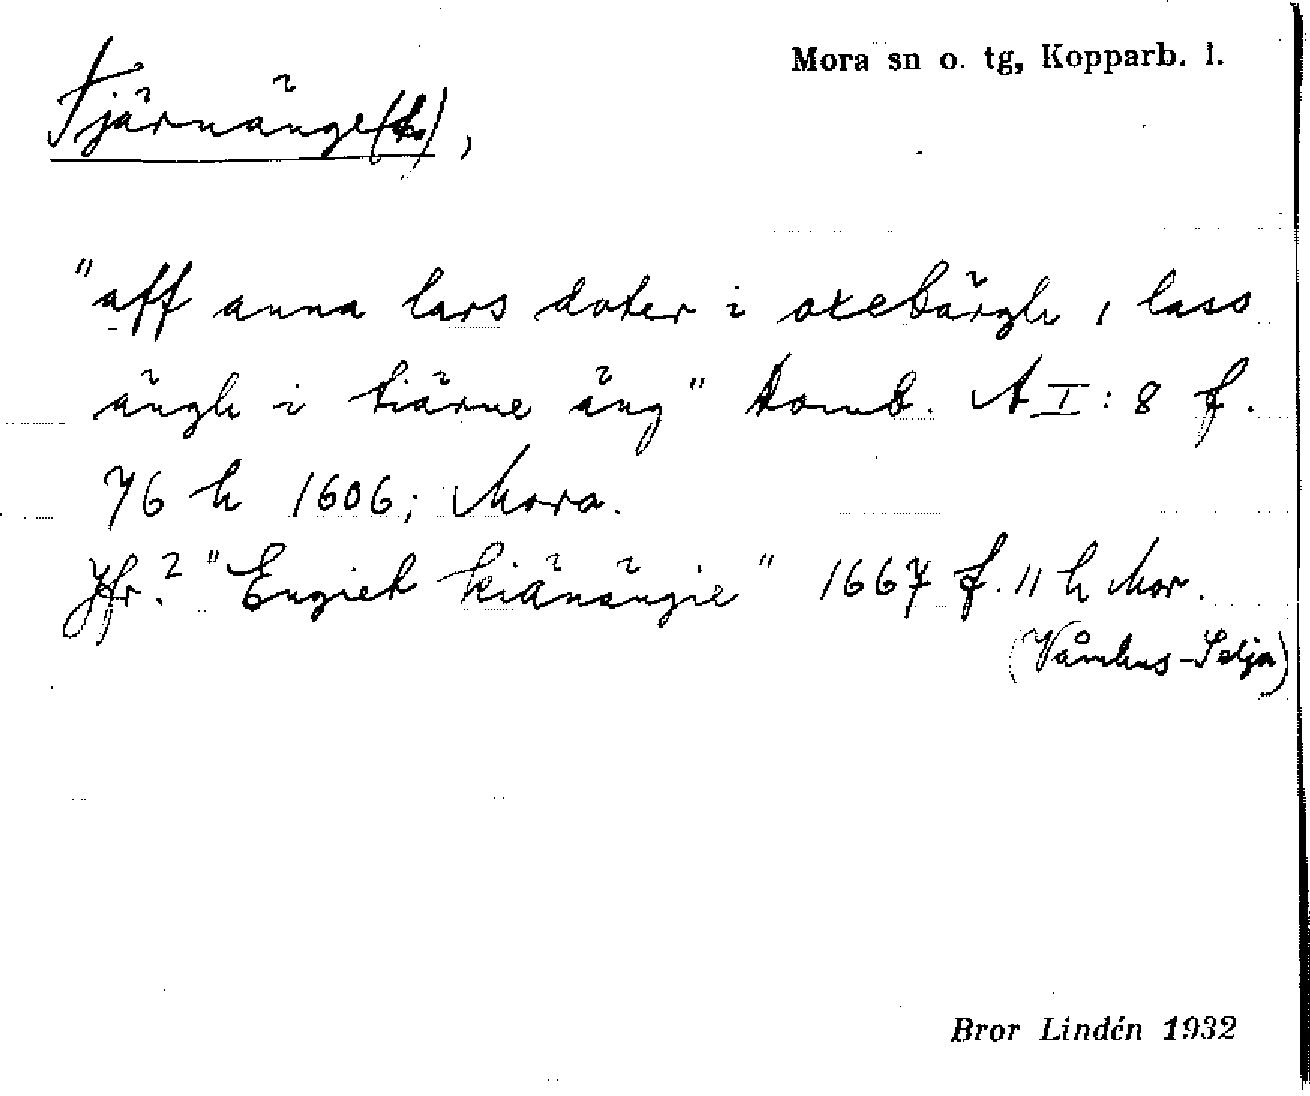 Mora sn o. tg, Kopparb. l.
Tjärnänge(t),
"aff anna lars doter i oxebärgh, 1 lass
ängh i tiärne äng" Domb. A I: 8 f.
76 h 1606; Mora.
Jfr.? "Engiet kiänängie" 1667 f. 11 h Mor.
(Våmhus-Selja)
Bror Lindén 1932